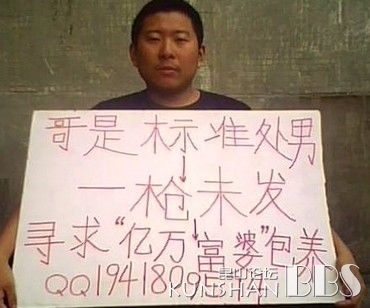 哥是标准处男
↓
一枪未发
↓
寻求“亿万富婆”包养
昆山论坛
KUNSHAN BBS